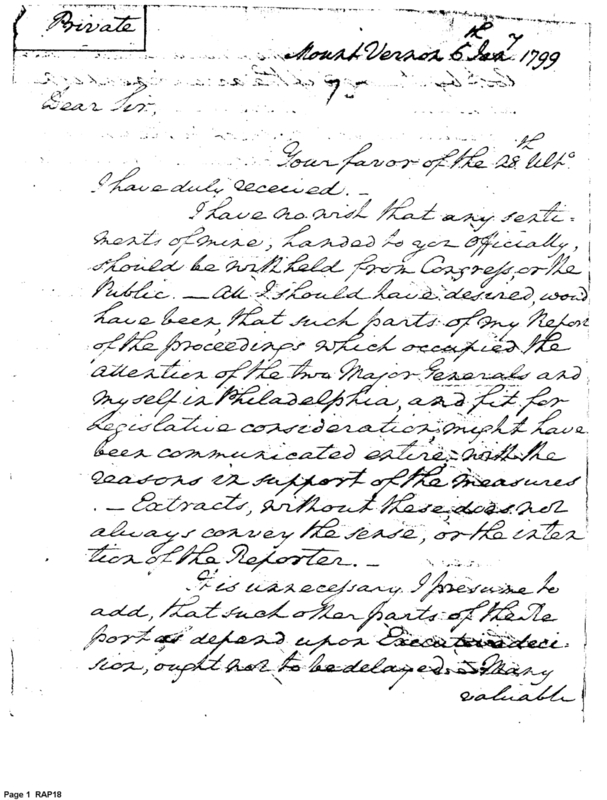 Private
Mount Vernon 5th Jany 1799
Dear Sir,
Your favor of the 28th Ulto
I have duly received. —
I have no wish that any senti-
ments of mine, handed to you officially,
should be withheld from Congress, or the
Public. — All I should have desired, would
have been, that such parts of my Report
of the proceedings which occupied the
attention of the two Major Generals and
myself in Philadelphia, and fit for
Legislative consideration, might have
been communicated entire; with the
reasons in support of the measures
. — Extracts, without these, does not
always convey the sense, or the inten
tion of the Reporter. —
It is unnecessary I presume to
add, that such other parts of the Re
port as depend upon Executive deci-
sion, ought not to be delayed. — Many
valuable
Page 1 RAP18